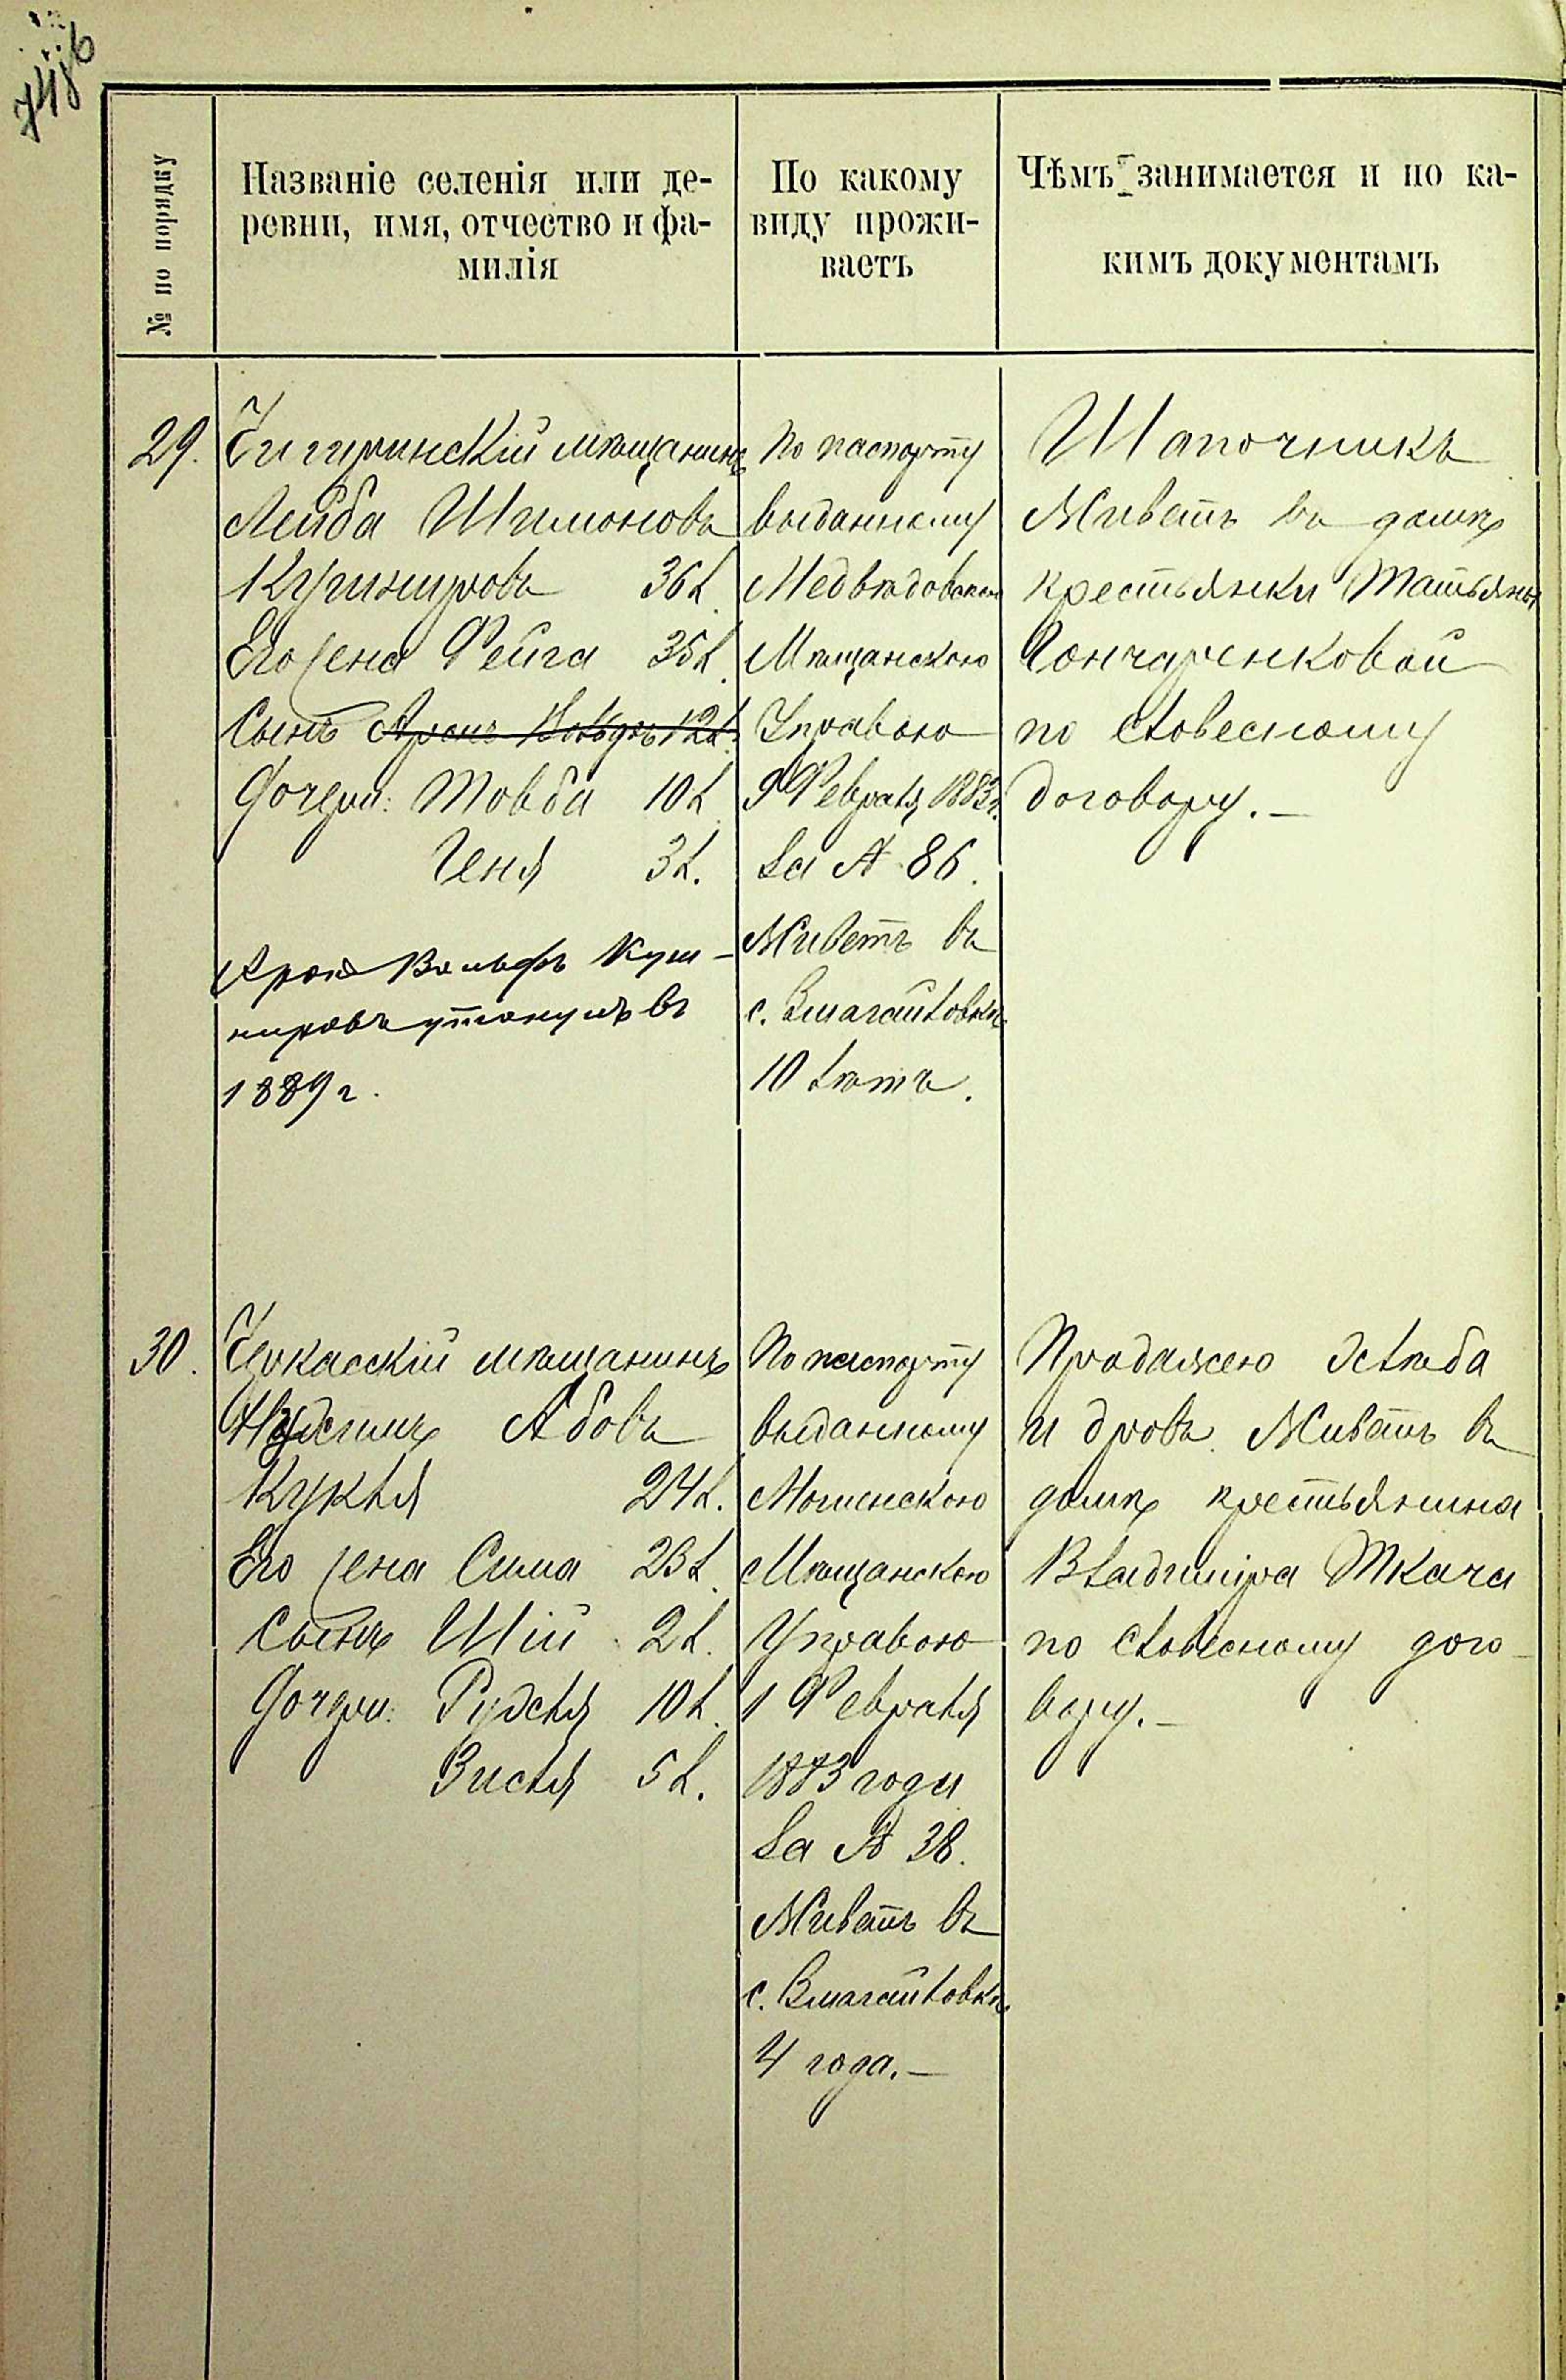 № по порядку
Названіе селенія или де-
ревни, имя, отчество и фа-
милія
По какому
виду прожи-
ваетъ
Чѣмъ занимается и по ка-
кимъ документамъ
29.
Чигиринскій мѣщанинъ
Лейба Шимоновъ
Кушнировъ 36 л.
Его жена Фейга 35 л.
Сынъ Аронъ Вольфъ 12 л.
Дочери: Товба 10 л.
Геня 3 л.
Аронъ Вольфъ Куш-
нировъ утонулъ въ
1889 г.
По паспорту
выданному
Медвѣдовскою
Мѣщанскою
Управою
9 Февраля 1883 г.
за № 86.
Живетъ въ
с. Змагайловкѣ
10 лѣтъ.
Шапочникъ
Живетъ въ домѣ
крестьянки Татьяны
Гончаренковой
по словесному
договору.-
30.
Черкасскій мѣщанинъ
Абовъ
Кукля 24 л.
Его жена Сима 23 л.
Сынъ Шій 2 л.
Дочери: Рухля 10 л.
Зисля 5 л.
По паспорту
выданному
Мошенскою
Мѣщанскою
Управою
1 Февраля
1883 года
за № 38.
Живетъ въ
с. Змагайловкѣ
4 года.-
Продажею хлѣба
и дровъ. Живетъ въ
домѣ крестьянина
Владиміра Ткача
по словесному дого-
вору.-